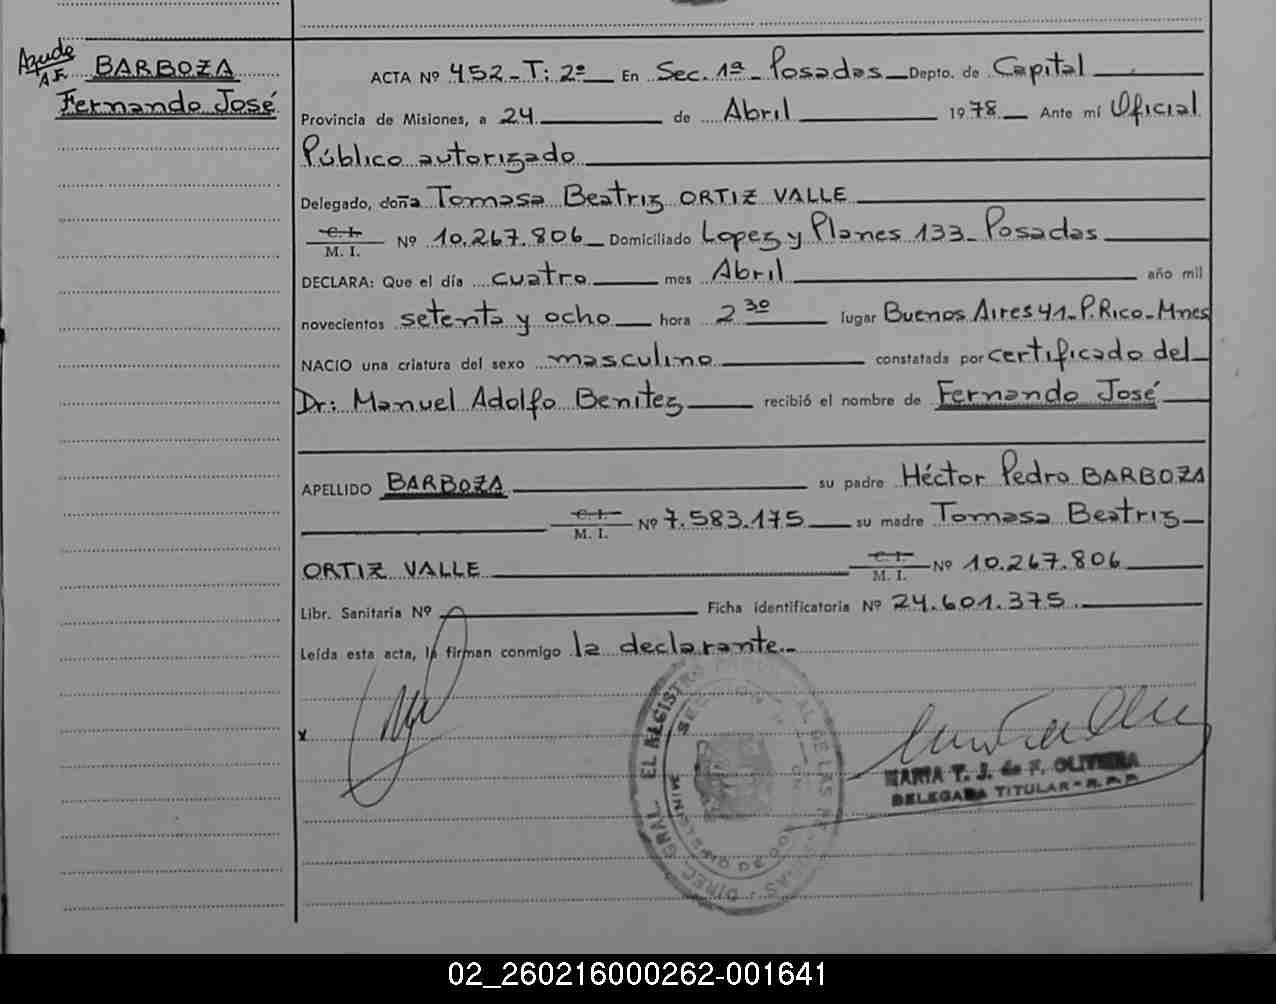 BARBOZA
Fernando José
ACTA Nº 452 - T: 2º En Sec. 1ª - Posadas Depto. de Capital
Provincia de Misiones, a 24 de Abril 1978 Ante mí Oficial
Público autorizado
Delegado, doña Tomasa Beatriz ORTIZ VALLE
C. I.
M. I. Nº 10.267.806 Domiciliado Lopez y Planes 133 - Posadas
DECLARA: Que el día cuatro mes Abril año mil
novecientos setenta y ocho hora 2 30 lugar Buenos Aires 41 - P. Rico - Mnes
NACIO una criatura del sexo masculino constatada por certificado del
Dr: Manuel Adolfo Benitez recibió el nombre de Fernando José
APELLIDO BARBOZA su padre Héctor Pedro BARBOZA
C. I.
M. I. Nº 7.583.175 su madre Tomasa Beatriz
ORTIZ VALLE C. I.
M. I. Nº 10.267.806
Libr. Sanitaria Nº Ficha identificatoria Nº 24.601.375
Leída esta acta, la firman conmigo la declarante.-
x
MARIA T. J. de F. OLIVEIRA
DELEGADA TITULAR - R.P.P.
02_260216000262-001641